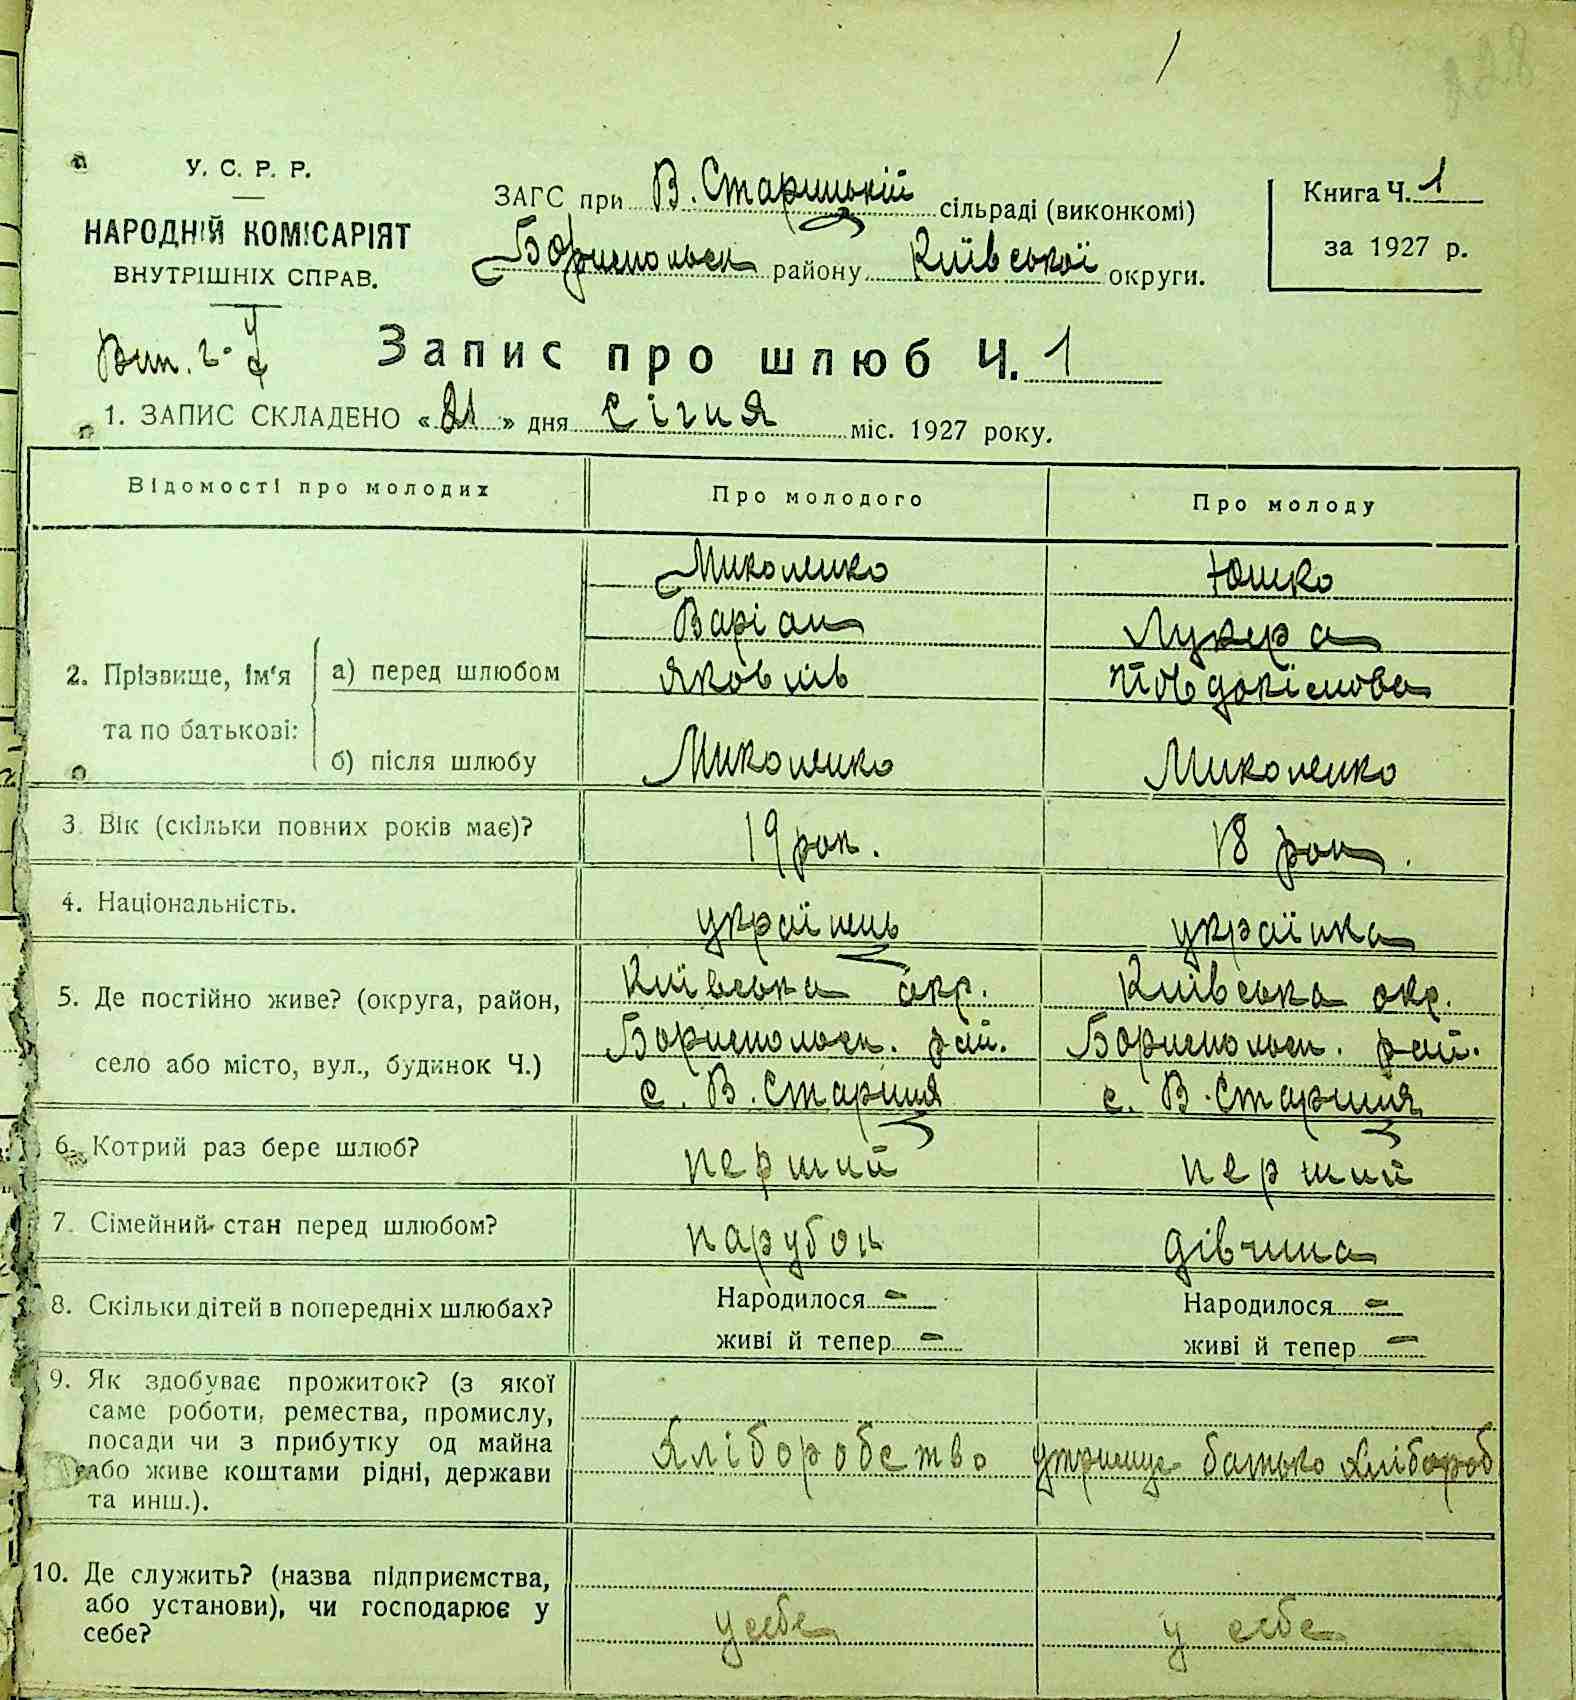 У. С. Р. Р.
НАРОДНІЙ КОМІСАРІЯТ
ВНУТРІШНІХ СПРАВ.
ЗАГС при В. Старицькій сільраді (виконкомі)
Бориспольськ району Київської округи.
Книга Ч. 1
за 1927 р.
Запис про шлюб Ч. 1
1. ЗАПИС СКЛАДЕНО « » дня січня міс. 1927 року.
Відомості про молодих Про молодого Про молоду
2. Прізвище, ім'я та по батькові:
а) перед шлюбом
Миколенко Юшко
Варіан Лукера
Яковлів
б) після шлюбу Миколенко Миколенко
3. Вік (скільки повних років має)? 19 рок. 18 рок.
4. Національність. українець українка
5. Де постійно живе? (округа, район, село або місто, вул., будинок Ч.)
Київська окр. Київська окр.
Бориспольск. рай. Бориспольск. рай.
с. В. Стариця с. В. Стариця
6. Котрий раз бере шлюб? перший перший
7. Сімейний стан перед шлюбом? парубок дівчина
8. Скільки дітей в попередніх шлюбах? Народилося - Народилося -
живі й тепер - живі й тепер -
9. Як здобуває прожиток? (з якої
саме роботи, ремества, промислу,
посади чи з прибутку од майна
або живе коштами рідні, держави
та инш.).
Хліборобство утримує батько хлібороб
10. Де служить? (назва підприємства,
або установи), чи господарює у
себе?
у себе у себе